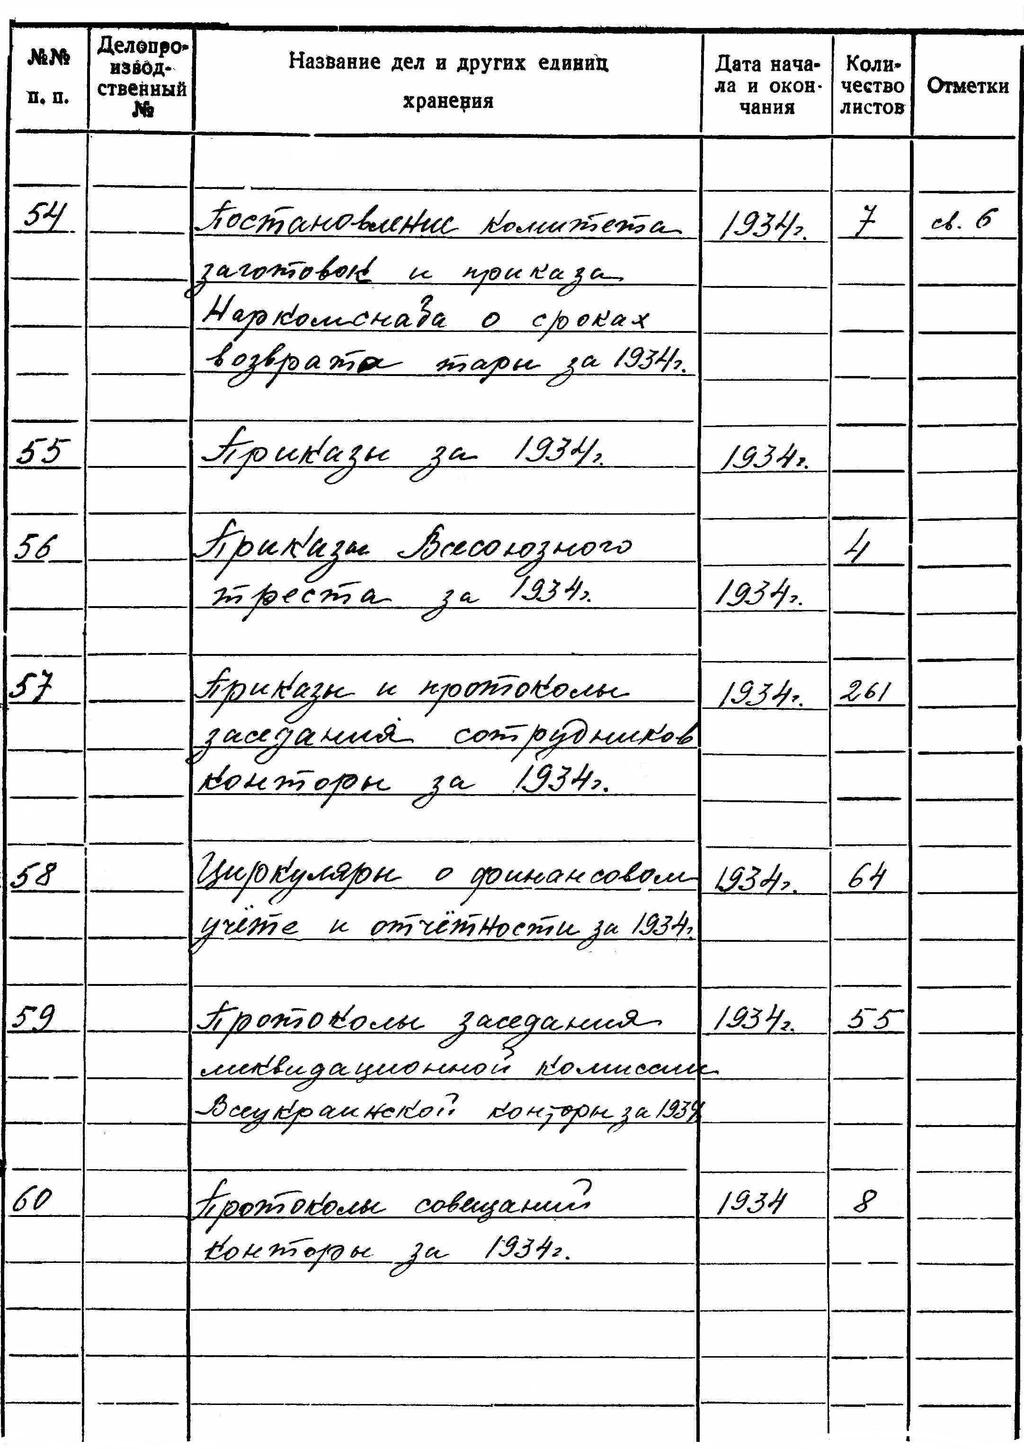 №№ п. п.
Делопроизвод-ственный №
Название дел и других единиц хранения
Дата нача-ла и окон-чания
Коли-чество листов
Отметки
54 Постановление комитета 1934г. 7 св. 6
заготовок и приказа
Наркомснаба о сроках
возврата тары за 1934г.
55 Приказы за 1934г. 1934г.
56 Приказы Всесоюзного 4
треста за 1934г. 1934г.
57 Приказы и протоколы 1934г. 261
заседания сотрудников
конторы за 1934г.
58 Циркуляры о финансовом 1934г. 64
учёте и отчётности за 1934г.
59 Протоколы заседания 1934г. 55
ликвидационной комиссии
Всеукраинской конторы за 1934
60 Протоколы совещаний 1934 8
конторы за 1934г.